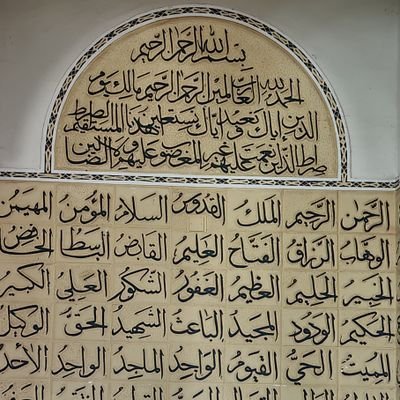 بسم الله الرحمن الرحيم
الحمد لله رب العالمين الرحمن الرحيم مالك يوم
الدين إياك نعبد وإياك نستعين اهدنا الصراط المستقيم
صراط الذين أنعمت عليهم غير المغضوب عليهم ولا الضالين
الرحمن الرحيم الملك القدوس السلام المؤمن المهيمن
الوهاب الرزاق الفتاح العليم القابض الباسط الخافض
الخبير الحليم العظيم الغفور الشكور العلي الكبير
الحكيم الودود المجيد الباعث الشهيد الحق الوكيل
المميت الحي القيوم الواجد الماجد الواحد الأحد